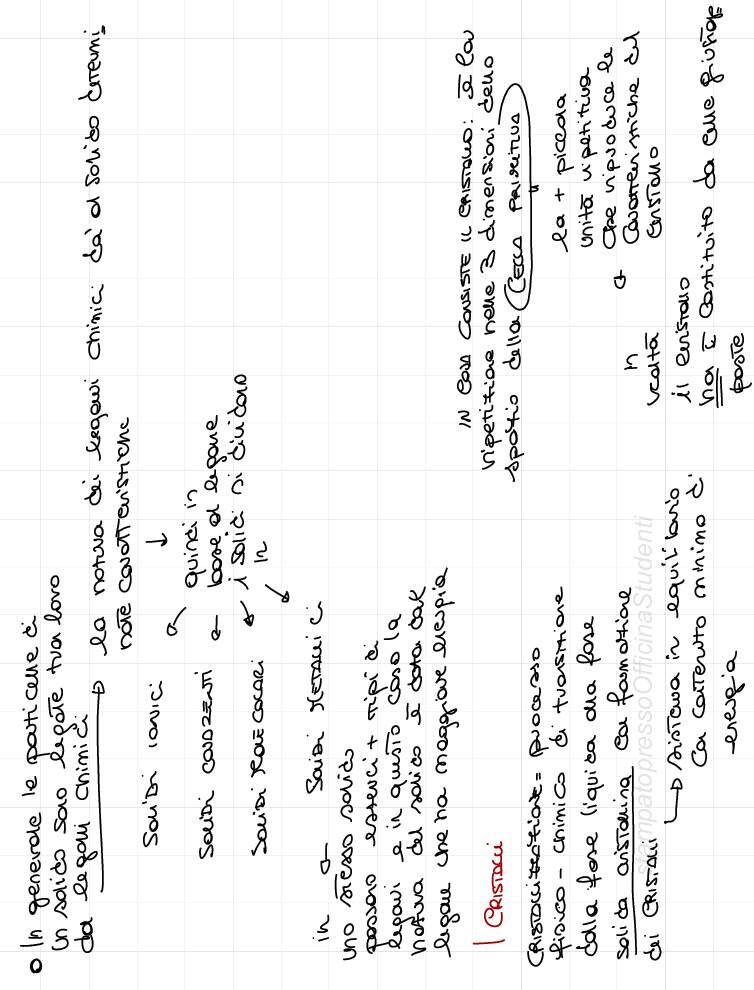 o In generale le particelle di
un solido sono legate tra loro
da legami chimici → la natura dei legami chimici dà al solido determi-
nate caratteristiche
↓
quindi in
base al legame
i solidi si dividono
in
SOLIDI IONICI
SOLIDI COVALENTI
SOLIDI MOLECOLARI
SOLIDI METALLICI
in
uno stesso solido
possono esserci + tipi di
legami e in questo caso la
natura del solido è data dal
legame che ha maggiore energia
I CRISTALLI
CRISTALLIZZAZIONE = processo
fisico-chimico di transizione
dalla fase liquida alla fase
solida cristallina con formazione
di CRISTALLI
→ sistema in equilibrio
con contenuto minimo di
energia
IN COSA CONSISTE IL CRISTALLO: è la
ripetizione nelle 3 dimensioni dello
spazio della CELLA PRIMITIVA
la + piccola
unità ripetitiva
che riproduce le
caratteristiche del
cristallo
in
realtà
il cristallo
non è costituito da celle
poste
stampatopressoOfficinaStudenti